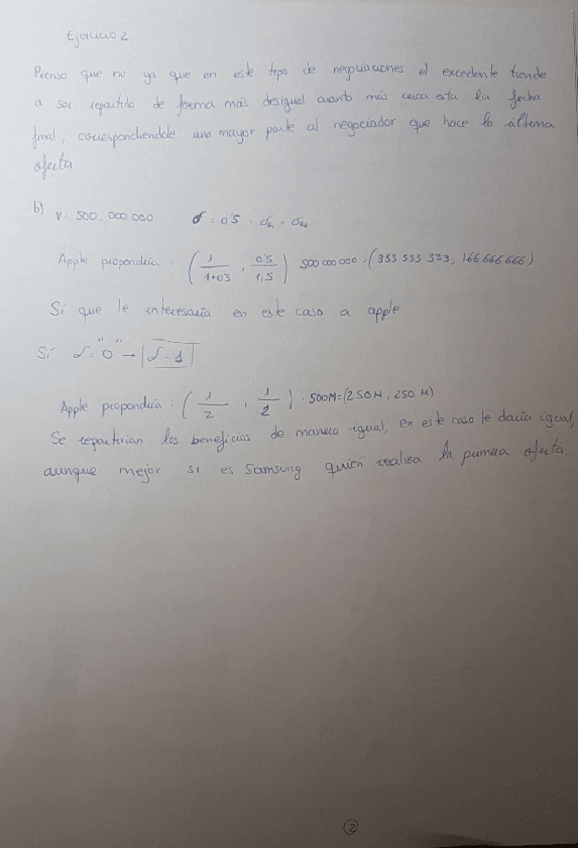 Ejercicio 2
Pienso que no ya que en este tipo de negociaciones el excedente tiende
a ser repartido de forma más desigual cuanto más cerca esta la fecha
final, correspondiendole una mayor parte al negociador que hace la última
oferta
b) V = 500.000 000 δ = 0'5 = δa = δsa
Apple propondría = (1/1+0'5 , 0'5/1,5) 500 000 000 = (333 333 333, 166 666 666)
Si que le interesaría en este caso a apple.
Si r = "0" → δ = 1
Apple propondría = (1/2 , 1/2) · 500M = (250M, 250 M)
Se repartirían los beneficios de manera igual, en este caso le daría igual,
aunque mejor si es Samsung quien realiza la primera oferta.
2